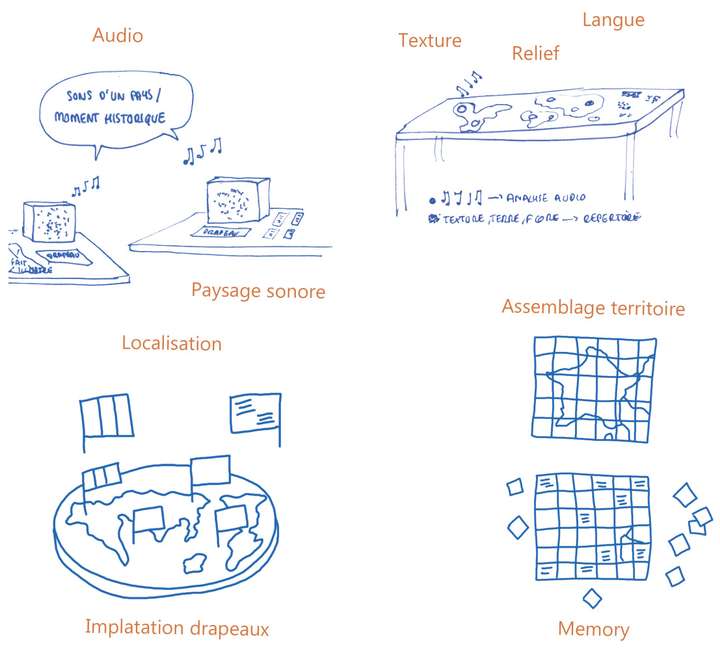 Audio
SONS D'UN PAYS/
MOMENT HISTORIQUE
DRAPEAU
FAIT
DRAPEAU
Paysage sonore
Langue
Texture
Relief
→ ANALYSE AUDIO
TEXTURE, TERRE, FLORE → REPERTOIRE
Localisation
Implatation drapeaux
Assemblage territoire
Memory